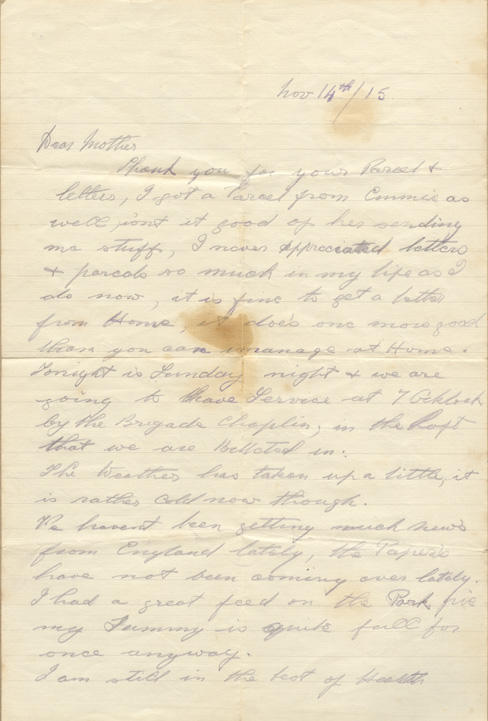 Nov 14th/15
Dear Mother
Thank you for your Parcel &
letters, I got a Parcel from Emmie as
well isnt it good of her sending
me stuff, I never appreciated letters
& parcels so much in my life as I
do now, it is fine to get a letter
from Home, it does one more good
than you can imanage at Home.
Tonight is Sunday night & we are
going to have Service at 7 Ocklock
by the Brigade Chaplin, in the Loft
that we are Bellated in.
The Weather has taken up a little, it
is rather cold now though.
We havent been getting much news
from England lately, the Papers
have not been coming over lately.
I had a great feed on the Pork pie
my Tummy is quite full for
once anyway.
I am still in the best of Health